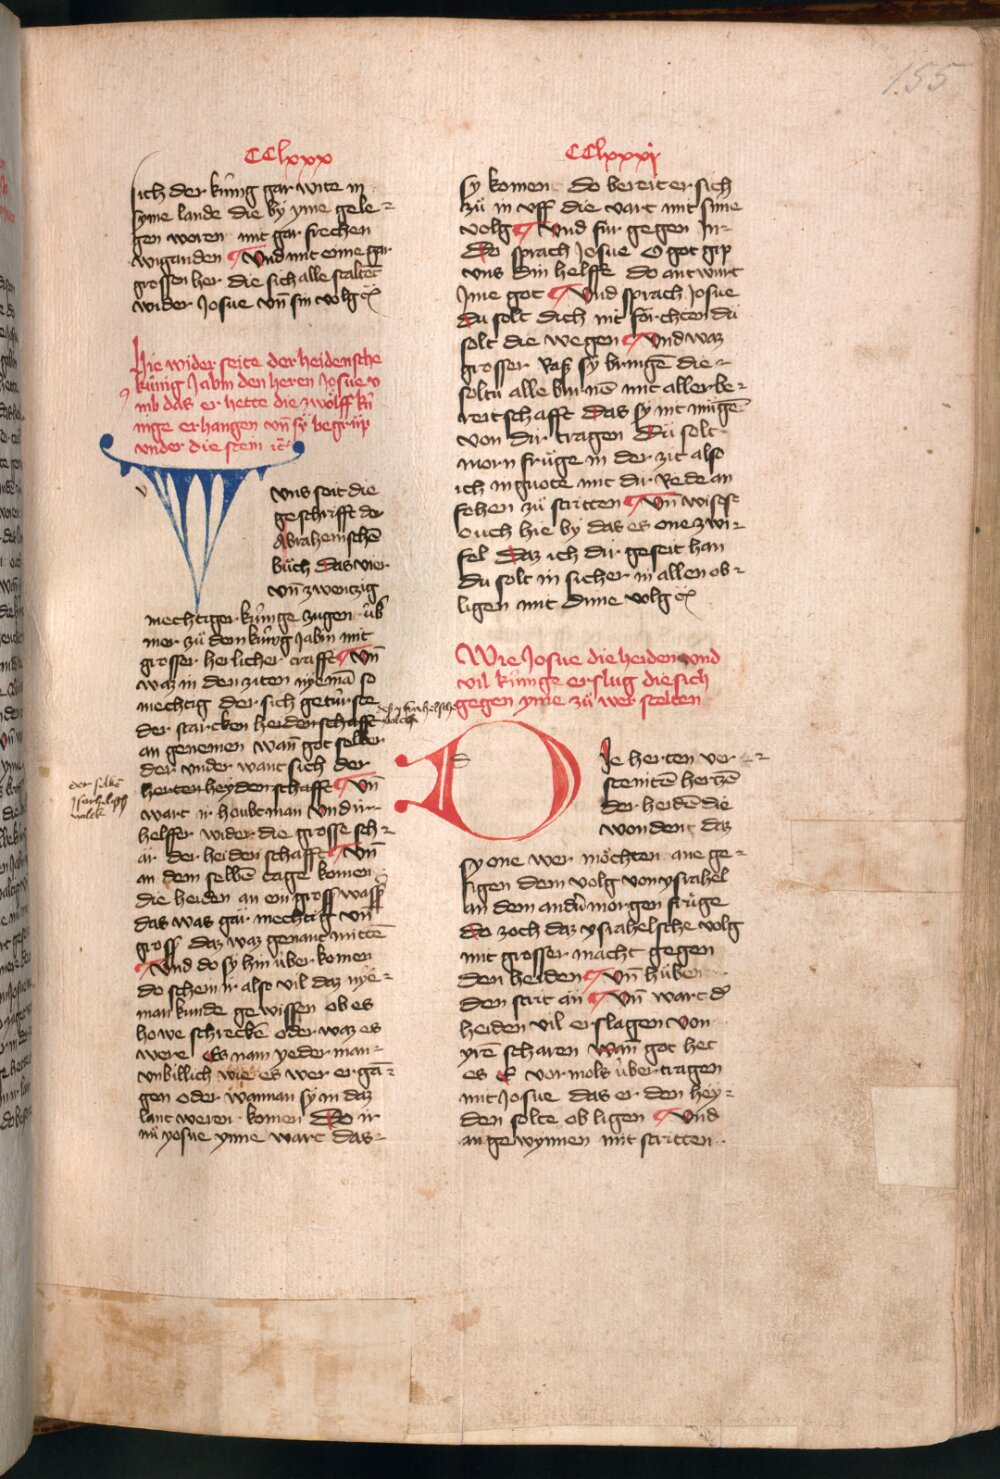 155
CClxxx
sich der kúnig gar wite in
syme lande die by yme gele-
gen woren mit gar frechen
wiganden ¶ Und mit eime gar
grossen her die sich alle stalteͤt
wider Josue vn̄ sin volg ꝛc
Hie wider seite der heidensche
kúnig Jabin den heren Josue v
mb das er hette die zwölff kú
nige erhangen vn̄ sy begrůp
vnder die stein ꝛc
W
vns seit die
geschrifft der
Abrahemschē
bůch das vier
vn̄ zwentzig
mechtiger kúnige zugen úb
mer zů dem kúnig Jabin mit
grosser herlicher crafft ¶ Vn̄
waz in den ziten nyemā so
mechtig der sich getúrste
der starcken heidenschafft
an genemen wan̄ got selber
der vnder want sich der
herten heydenschafft ¶ Vn̄
wart ir houbtman vnd ir
helffer wider die grosse sch-
ar der heidenschafft ¶ Vn̄
an dem selbē tage komen
die heiden an ein gross wasser
das was gar mechtig vn̄
gross daz waz genant mittē
¶ Und do sy hin úber komen
do schein ir also vil daz nye-
man kunde gewissen ob es
howe schreckē oder waz es
were Es nam yederman
vnbillich wie es wer ergā-
gen oder wannan sy in daz
lant weren komen Do ir
nů yosue ynne wart das
der selbē
volck
CClxxxi
sy komen do bereit er sich
zů in vff die vart mit sime
volg ¶ Und fúr gegen In
Do sprach Josue O got gip
vns din helffe do antwurt
Jme got ¶ Und sprach Josue
du solt dich nit förchten du
solt die wegen ¶ Und waz
grosser Ross sy bringē die
soltu alle bin nē mit aller be-
reitschafft Das sy nit mügē
von dir tragen Du solt
morn frůge in der zit also
ich in gůote mit dir Rede an
fohen zů stritten ¶ Vn̄ wisse
ouch hie by das es one zwi-
fel Daz ich dir geseit han
du solt in sicher in allen ob-
ligen mit dime volg ꝛc
Wie Josue die heiden vnd
vil kúnige erslug die sich
gegen yme zů wer stelten
D
Je herten ver-
steintē hertzē
der heidē die
wondent daz
sy one wer möchten ane ge-
sigen dem volg von ysrahel
an dem andn̄ morgen frůge
do zoch daz ysrahelsche volg
mit grosser macht gegen
den heiden ¶ Vn̄ hůben
den strit an ¶ Vn̄ wart d
heiden vil erslagen von
yrē scharen wan̄ got het
es vormols úber tragen
mit Josue das er den hey-
den solte ob ligen ¶ Und
an gewynnen mit stritten